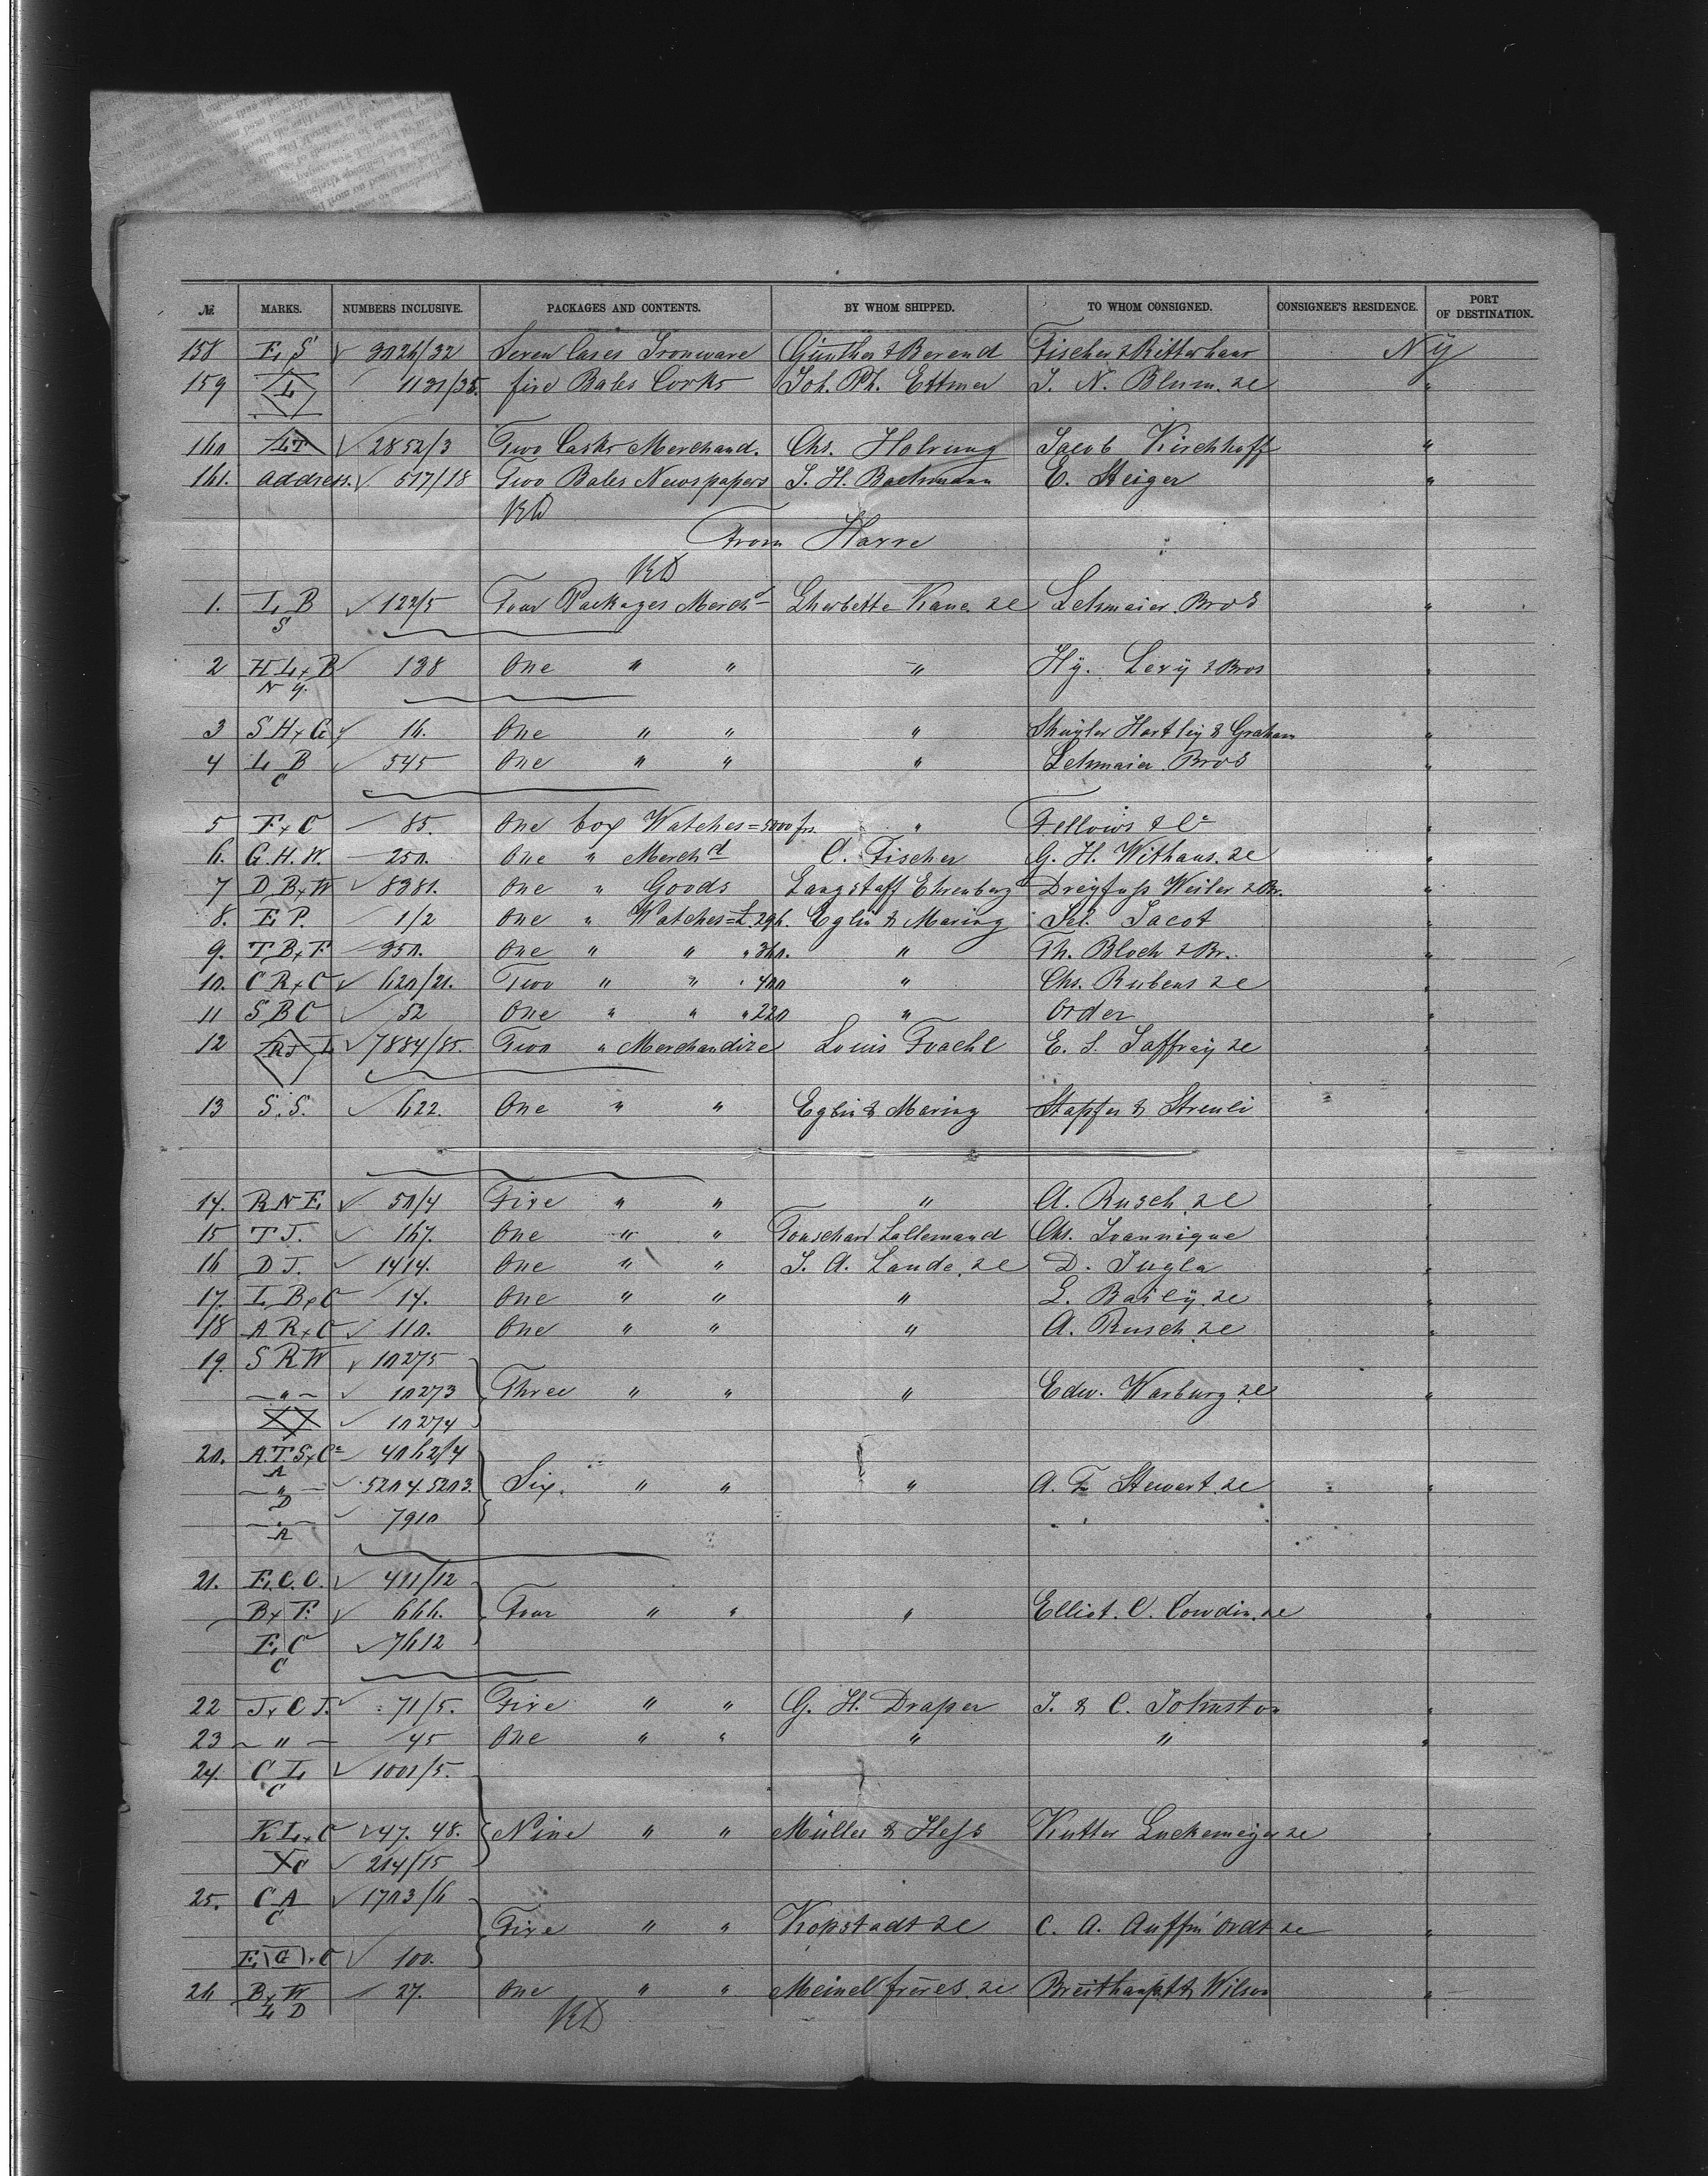 № MARKS. NUMBERS INCLUSIVE. PACKAGES AND CONTENTS. BY WHOM SHIPPED. TO WHOM CONSIGNED. CONSIGNEE'S RESIDENCE. PORT OF DESTINATION.
158 E S 3026/32 Seven Cases Ironware Günther & Berend Fischer & Ritterhaus NY
159 L 1131/35. five Bales Corks Joh. Ph. Ettmer J. N. Blum. & C "
160 LT 2852/3 Two Casks Merchand. Chs. Holrung Jacob Kirchhoff "
161. address. 517/18 Two Bales Newspapers J. H. Bachmann E. Steiger "
From Havre
1. L B S 122/5 Four Packages Merchd Lherbette Kane & C Lehmaier Bros "
2 H L & B NY. 138 One " " " Hy. Levy & Bros "
3 S H & G 16. One " " " Shuyler Hartley & Graham "
4 L B C 545 One " " " Lehmaier Bros "
5 F & C 85. One box Watches = 5000 frs. " Fellows & Co "
6. G. H. W. 250. One " Merchd C. Fischer G. H. Withaus. & C "
7 D B & W 8381. One " Goods Langstaff Ehrenberg Dreyfuss Weiler & Br. "
8. E P. 1/2 One " Watches = £. 296. Eglin & Maring Jul. Jacot "
9. T B & F 350. One " " " 360. " Th. Bloch & Br. "
10. C R & C 620/21. Two " " " 400 " Chs. Rubens & C "
11 S B C 52 One " " " 220 " Order "
12 7884/85. Two " Merchandize Louis E. S. Jaffray & C "
13 S. S. 622. One " " Eglin & Maring Stapfer & Streuli "
14. R N E 50/4 Five " " " A. Rusch & C "
15 T J. 167. One " " Fouschard Lallemand Chs. Joannigue "
16 D J. 1414. One " " J. A. Lande. & C D. Jugla "
17. L B & C 14. One " " " L. Baily. & C "
18 A R & C 110. One " " " A. Rusch. & C "
19. S R W 10275
" 10273 Three " " " Edw. Warburg & C "
10274
20. A. T. S & Co A 4062/4
" D 5204. 5203. Six. " " " A. T. Stewart. & C "
" A 7910
21. E. C. C. 411/12
B & F. 666. Four " " " Elliot. C. Cowdin. & C "
E C C 7612
22 J & C J. 71/5. Five " " G. H. Draper J. & C. Johnston "
23 " 45 One " " " " "
24. C L C 1001/5.
K L & C 47. 48. Nine " " Müller & Hess Kutter Luckemeyer & C "
214/15
25. C A C 1703/6
Five " " Kopstadt & C C. A. Auffm'Ordt & C "
E G & C 100.
26 B & W L D 27. One " " Meinel frères. & C Breithaupt & Wilson "